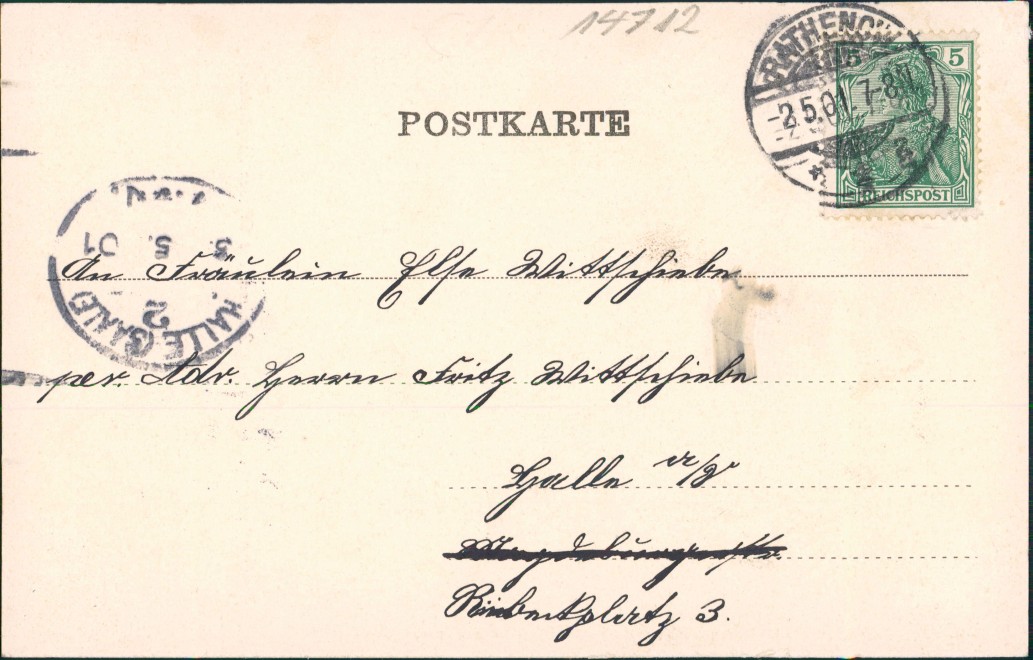 14712
RATHENOW
-2.5.01. 7-8N.
5
REICHSPOST
POSTKARTE
3. 5. 01
HALLE (SAALE)
2
An Fräulein Else Wittschiebe
per. Adr. Herrn Fritz Wittschiebe
Halle a/S
Magdeburgerstr.
Riebeckplatz 3.